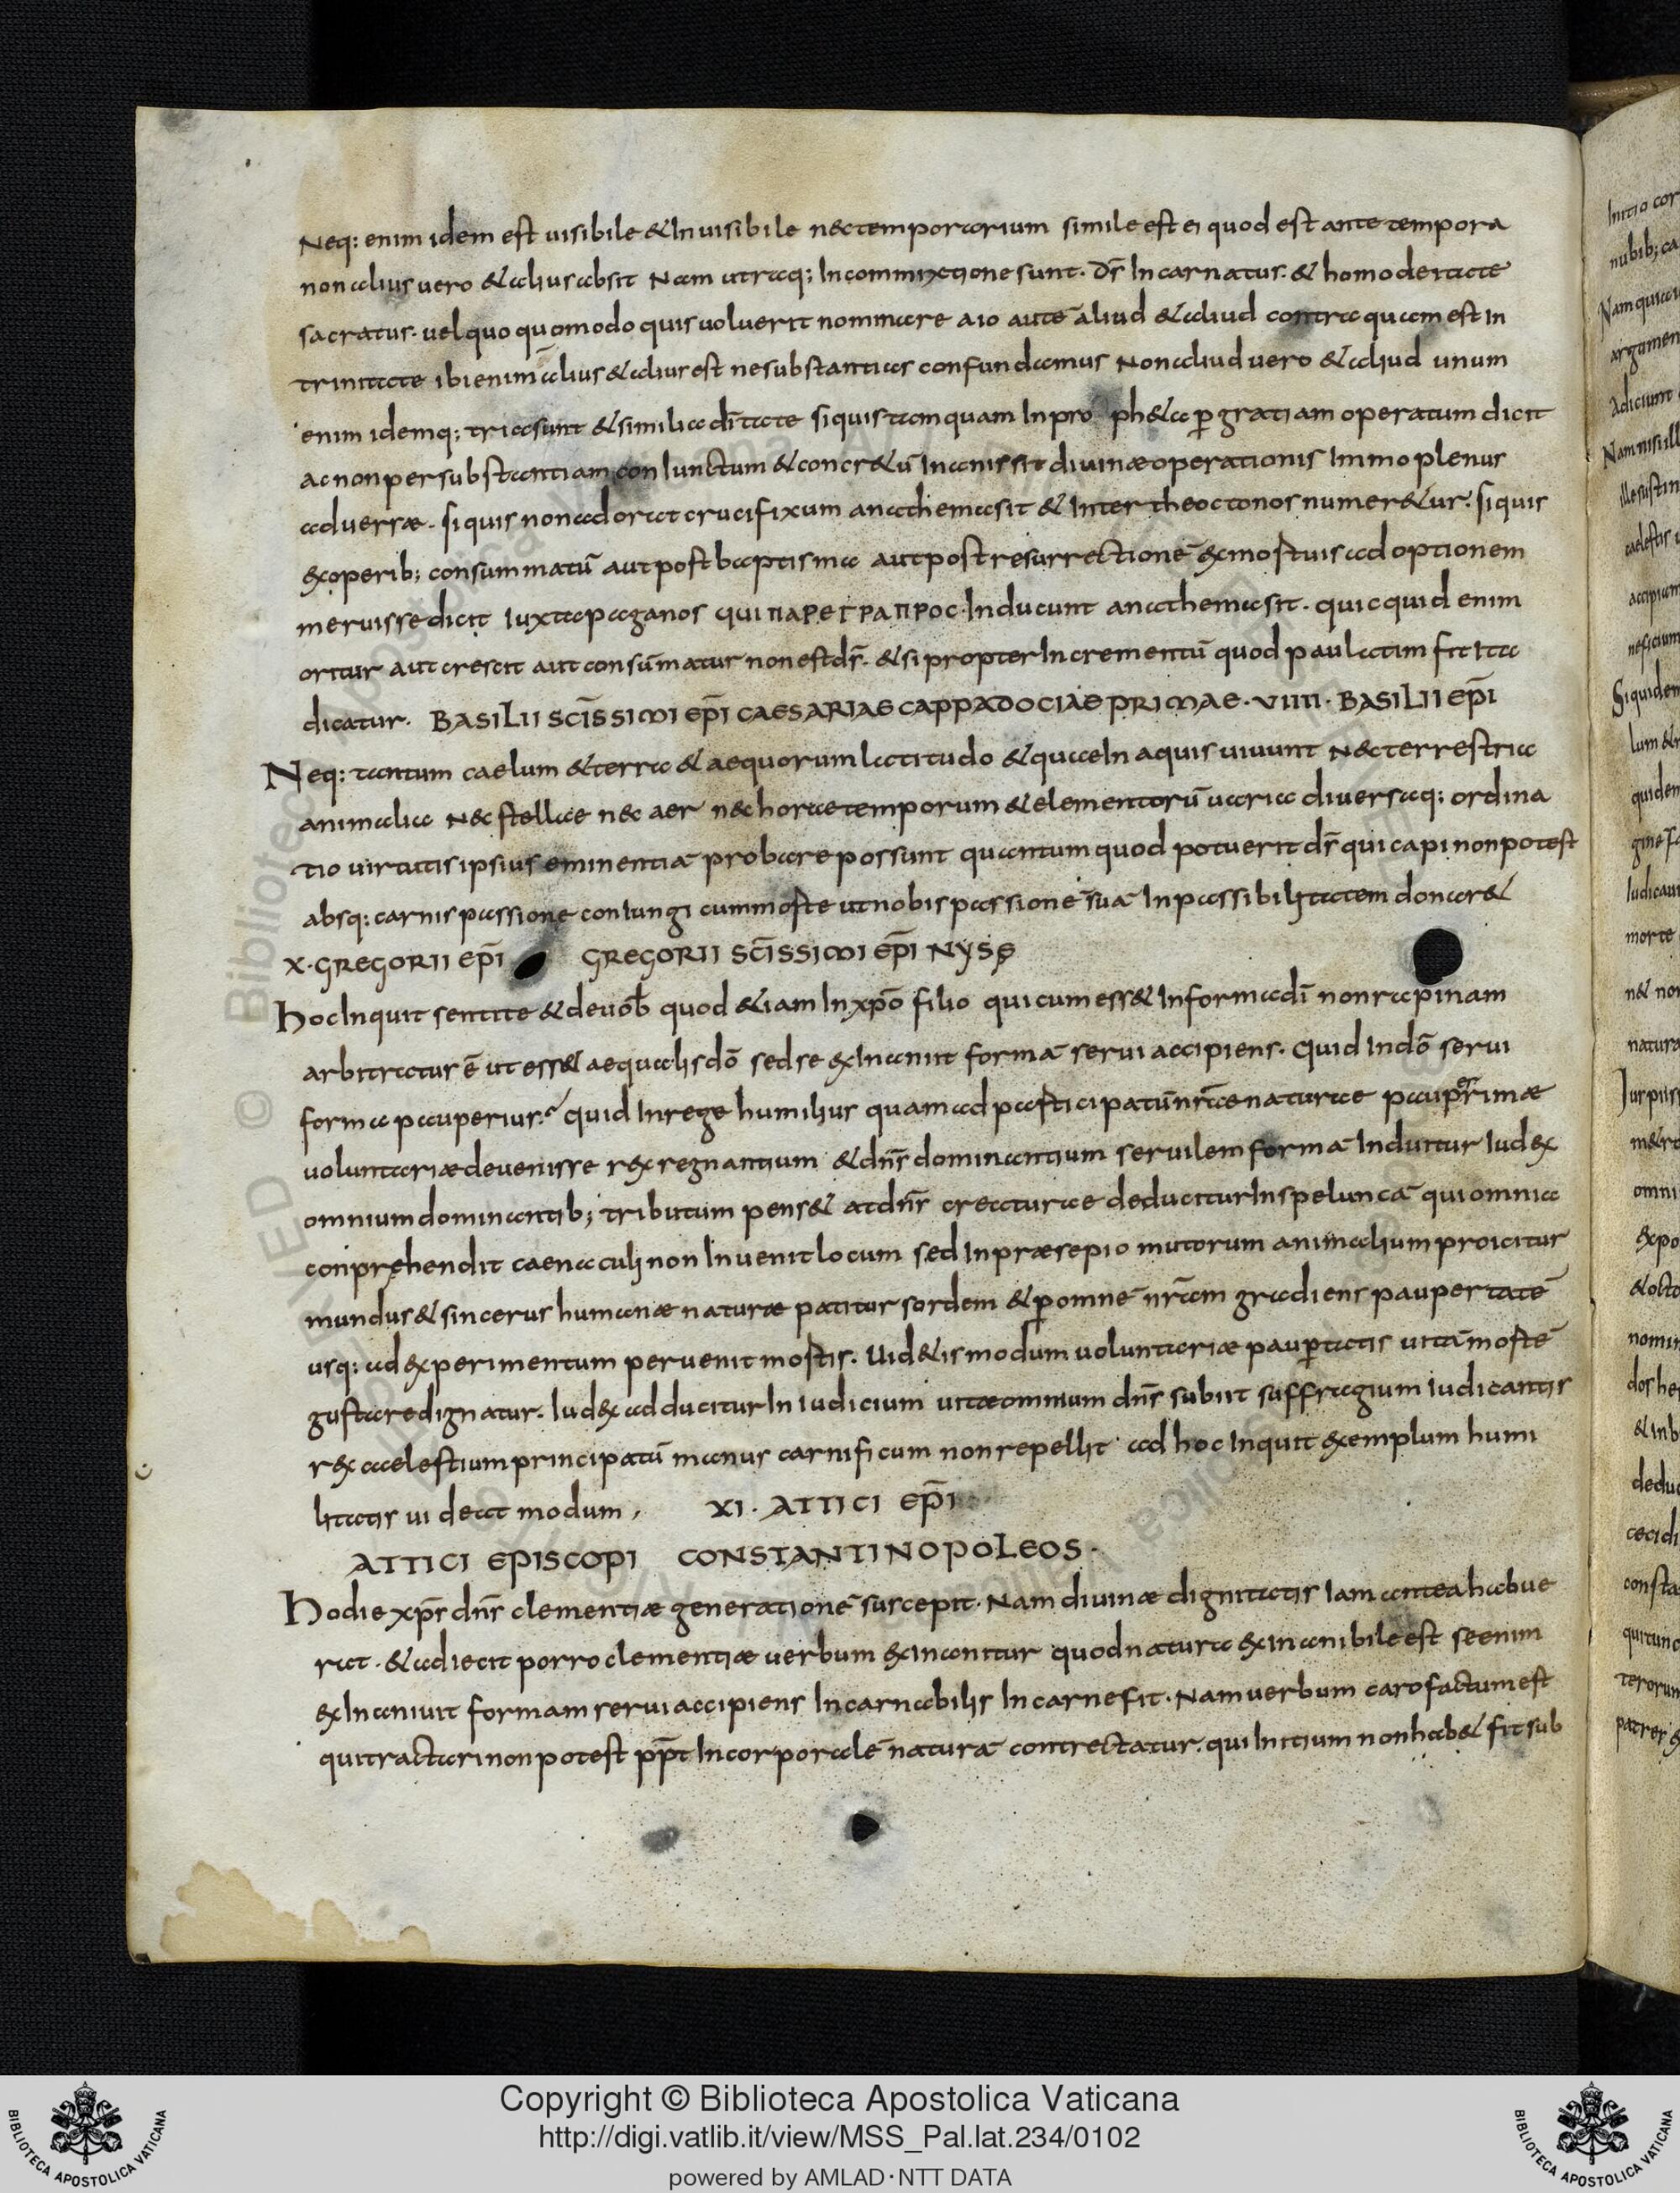 Neq: enim idem est uisibile & Inuisibile nec temporarium simile est ei quod est ante tempora
non alius uero & alius absit Nam utraq; Incommixtione sunt. ds̄ Incarnatus. & homo deitate
sacratus. uel quoquomodo quis uoluerit nominare aio autē aliud & aliud contra quam est In
trinitate ibi enim alius & alius est ne substantias confundamus Non aliud uero & aliud unum
enim idemq; tria sunt & similia dītate siquis tamquam Inpropheta p gratiam operatum dicit
ac non per substantiam coniunctum & concr&ū Inanis sit diuinæ operationis Immo plenus
aduersæ. siquis non adorat crucifixum anathema sit & Inter theoctonos numer&ur. siquis
ex operib; consummatū aut post baptisma aut post resurrectionē ex mortuis adoptionem
meruisse dicit Iuxta paganos qui παρεγραπρος Inducunt anathema sit. quicquid enim
oritur aut crescit aut consūmatur non est ds̄. & si propter Incrementū quod paulatim fit Ita
dicatur. BASILII SCISSIMI EPI CAESARIAE CAPPADOCIAE PRIMAE. VIIII. BASILII EPI
Neq: tantum caelum & terra & aequorum latitudo & quae In aquis uiuunt nec terrestria
animalia nec stellae nec aer nec horae temporum & elementorū uaria diuersaq; ordina
tio uirtutis ipsius eminentiā probare possunt quantum quod potuerit ds̄ qui capi non potest
absq: carnis passione coniungi cum morte ut nobis passionē suā Inpassibilitatem donar&
X. GREGORII EPI GREGORII SCISSIMI EPI NYSę
Hoc Inquit sentite & de uob̄ quod &iam In xp̄o filio qui cum ess& In forma dī non rapinam
arbitratur ē ut ess& aequalis dō sed se exInaniit formā serui accipiens. quid In dō serui
forma pauperius? quid In rege humilius quam ad participatū nrae naturae pauperrimæ
uoluntariæ deuenisse rex regnantium & dns̄ dominantium seruilem formā Induitur Iudex
omnium dominantib; tributum pens& at dns̄ creaturae deducitur In speluncā qui omnia
conprehendit caenaculi non Inuenit locum sed In præsepio mutorum animalium proicitur
mundus & sincerus humanæ naturæ patitur sordem & p omnē nram gradiens paupertatē
usq: ad experimentum peruenit mortis. Uid&is modum uoluntariæ paupertatis uitā mortē
gustare dignatur. Iudex adducitur In iudicium uitae omnium dns̄ subiit suffragium Iudicantis
rex caelestium principatū manus carnificum non repellit ad hoc Inquit exemplum humi
litatis uideat modum, XI. ATTICI EPI
ATTICI EPISCOPI CONSTANTINOPOLEOS.
Hodie xps̄ dns̄ clementiæ generationē suscepit. Nam diuinæ dignitatis Iam antea habue
rat. & adiecit porro clementiæ uerbum exinanitur quod natura exInanibile est se enim
exInaniuit formam serui accipiens Incarnabilis In carne fit. Nam uerbum caro factum est
qui tractari non potest pp̄t Incorporalē naturā contrectatur. qui Initium non hab& fit sub
Copyright © Biblioteca Apostolica Vaticana
http://digi.vatlib.it/view/MSS_Pal.lat.234/0102
powered by AMLAD·NTT DATA